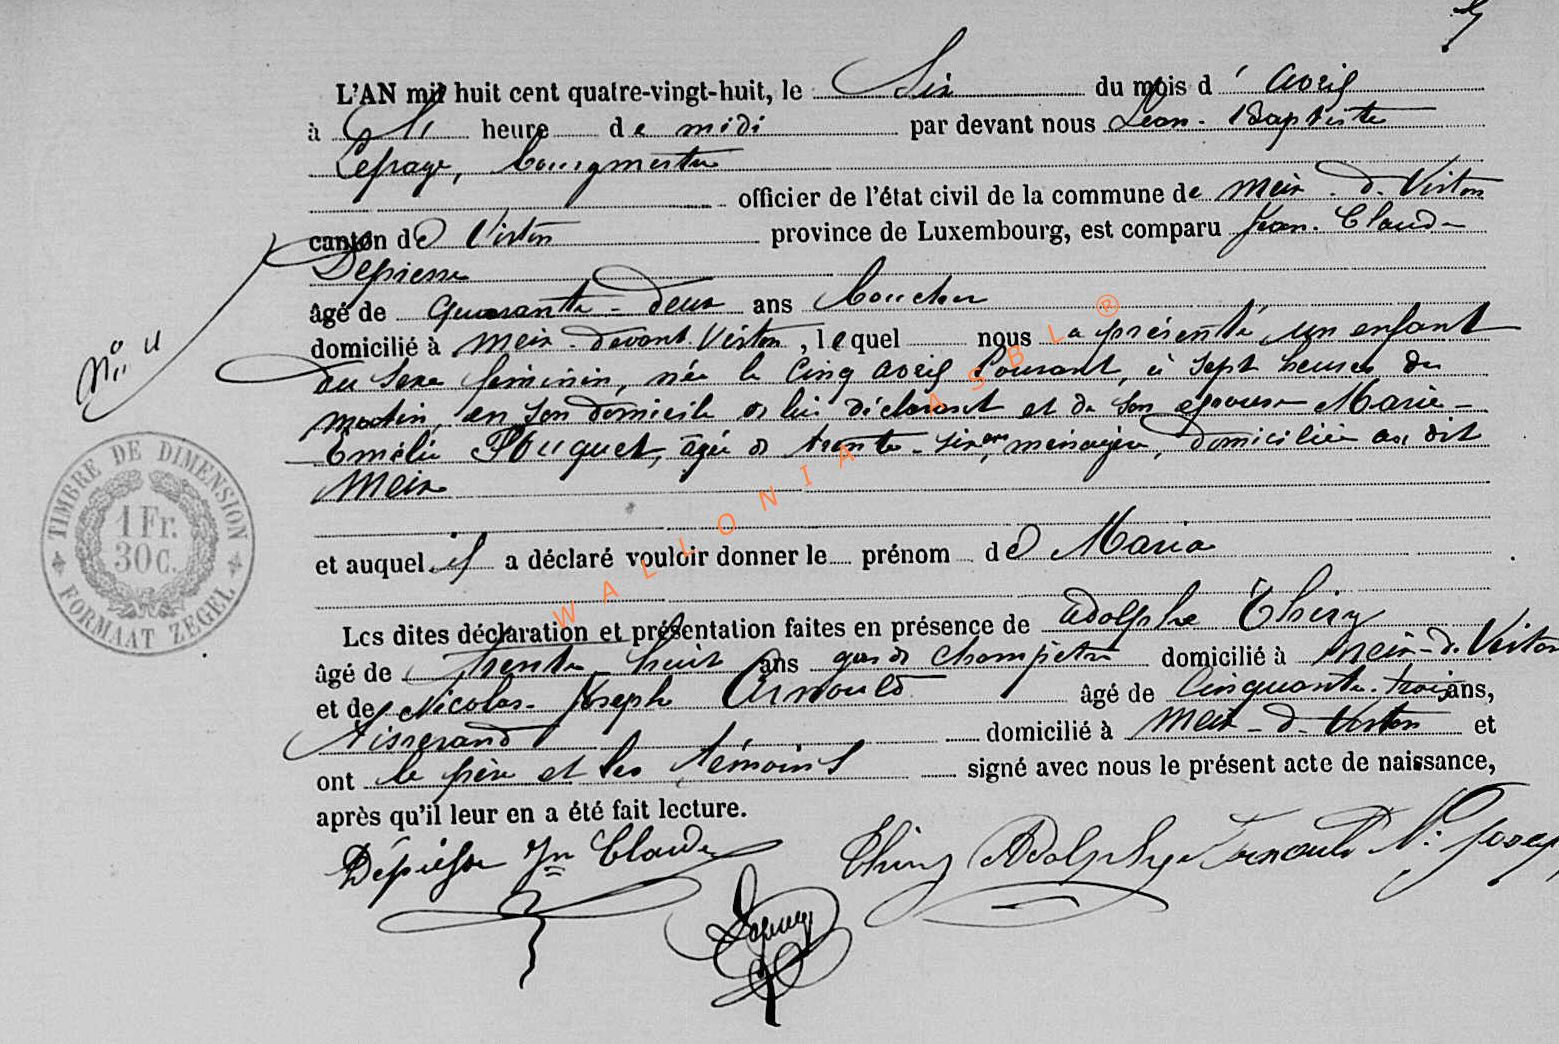 5
L'AN mil huit cent quatre-vingt-huit, le Six du mois d' avril
à heure de midi par devant nous Jean-Baptiste
Lepage, bourgmestre
officier de l'état civil de la commune de Meix-d-Virton
canton de Virton province de Luxembourg, est comparu Jean-Claude
Depiesse
âgé de quarante-deux ans boucher
domicilié à Meix-devant-Virton, lequel nous a présenté un enfant
du sexe féminin, née le cinq avril courant, à sept heures du
matin, en son domicile de lui déclarant et de son épouse Marie-
Emélie Pouquet, âgée de trente-six ans, ménagère, domiciliée au dit
Meix
et auquel il a déclaré vouloir donner le prénom de Maria
Les dites déclaration et présentation faites en présence de Adolphe Thiry
âgé de trente huit ans garde champêtre domicilié à Meix-d-Virton
et de Nicolas-Joseph Arnould âgé de cinquante-trois ans,
tisserand domicilié à Meix-d-Virton et
ont le père et les témoins signé avec nous le présent acte de naissance,
après qu'il leur en a été fait lecture.
Depiesse Jn Claude Thiry Adolphe Arnould N. Joseph
Lepage
TIMBRE DE DIMENSION
1 Fr.
30 c.
FORMAAT ZEGEL
WALLONIA ASBL ®